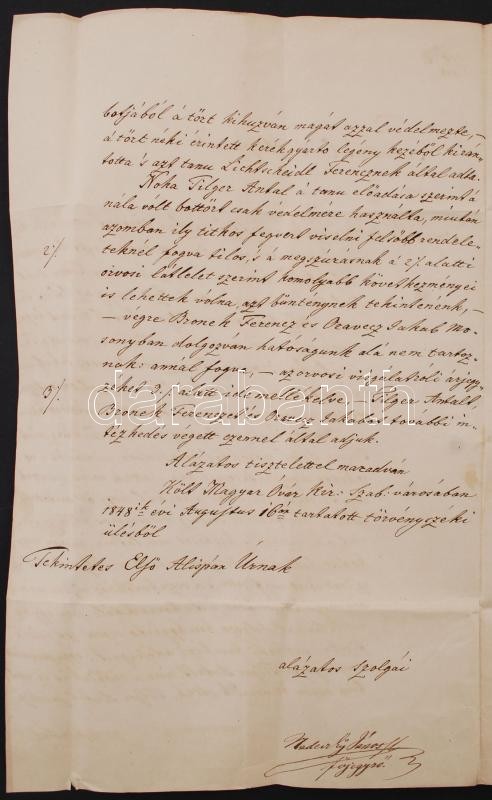 botjából á tört kihuzván magát azzal védelmezte, –
á tört néki érintett kerékgyarto legény keziből kirán-
totta 's azt tanu Lichtscheidl Ferencznek által adta.
Noha Tilger Antal á tanu előadása szerint á
nála vólt bottört csak védelmére használta, miután
azomban ily titkos fegyvert viselni felsőbb rendele-
2/. teknél fogva tilos, s á megszurásnak á 2/. alatti
orvosi látlelet szerint komolyabb következményei
is lehettek volna, azt bünténynek tekintenénk, –
– végre Bronek Ferencz és Oravecz Jakab Mo-
sonyban dolgozván hatóságunk alá nem tartoz-
nak: annál fogva, – az orvosi vizsgálatróli árjegy-
3/. zéket 3/. alatt ide mellékelve – Tilger Antalt,
Bronek Ferenczet és Oravecz Jakabot további in-
tézkedés végett ezennel által adjuk.
Alázatos tisztelettel maradván
Költ Magyar Óvár Kir: Szab: városában
1848ik évi Augustus 16án tartatott törvényszéki
ülésből
Tekintetes Első Alispán Úrnak
alázatos szolgái
János
főjegyző
darabanth